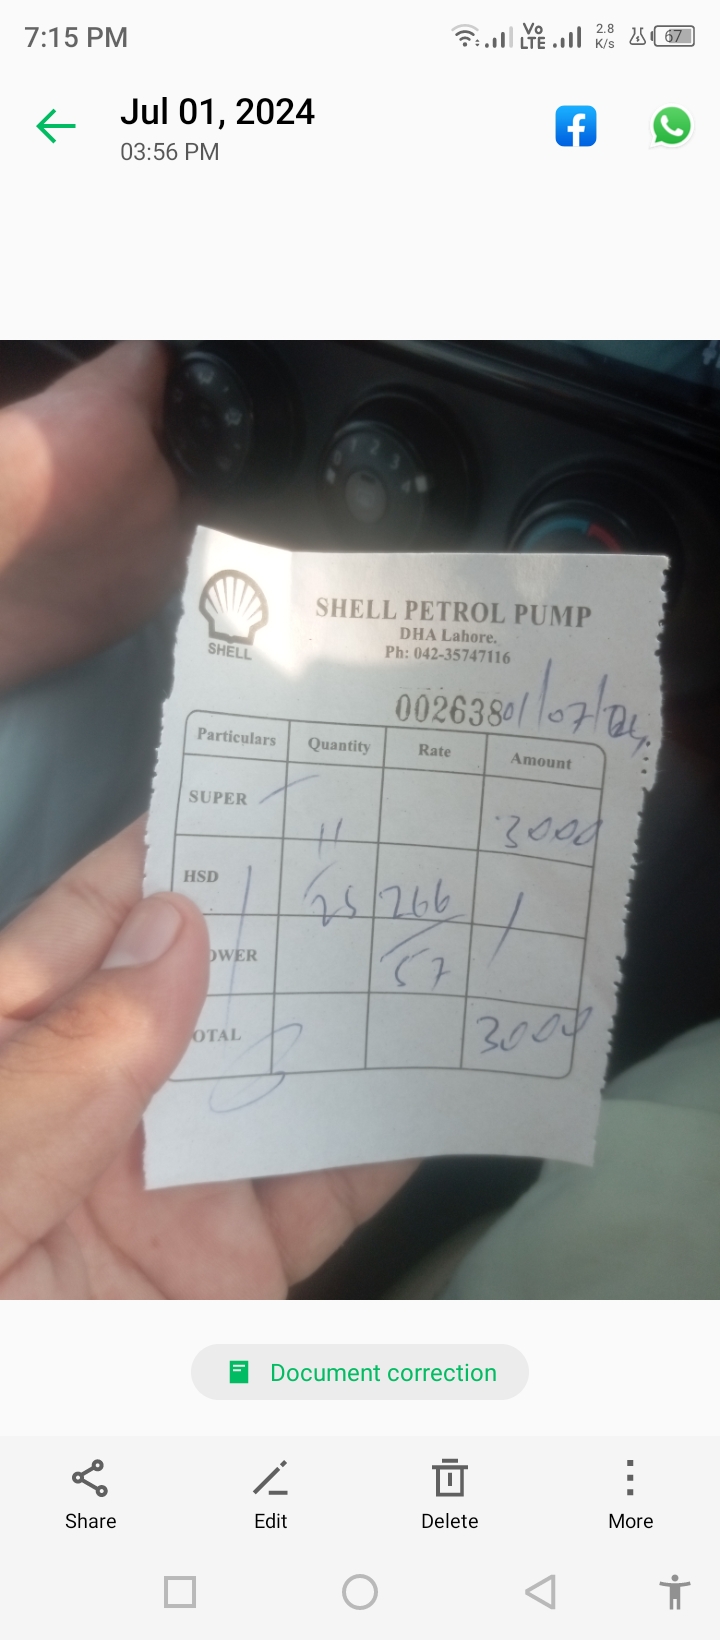 7:15 PM
Vo LTE
2.8 K/s
67
Jul 01, 2024
03:56 PM
0 1 2 3 4
SHELL
SHELL PETROL PUMP
DHA Lahore.
Ph: 042-35747116
002638
01/07/24
Particulars Quantity Rate Amount
SUPER 11 3000
HSD 25 266
OWER 57
OTAL 3000
Document correction
Share Edit Delete More